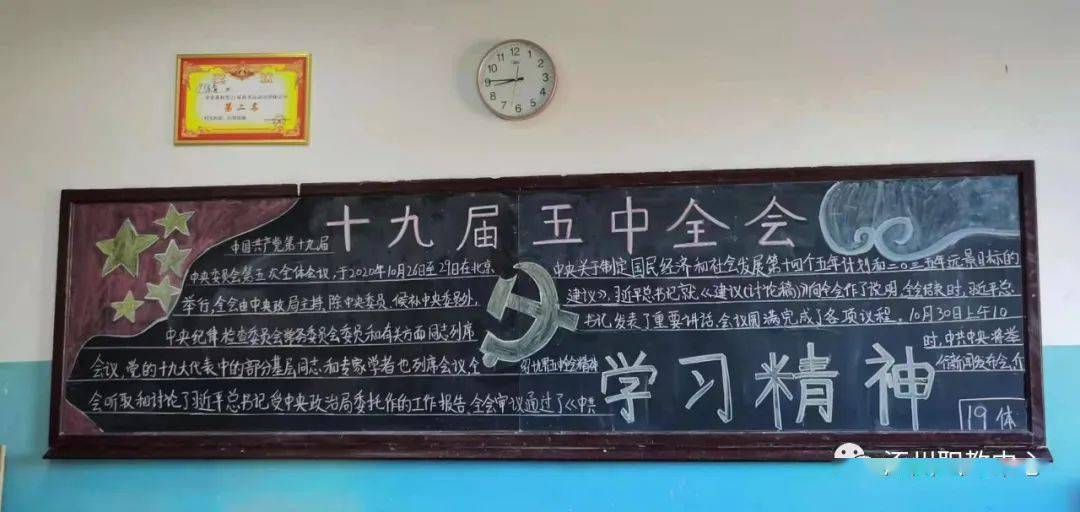 第二名
十九届五中全会
中国共产党第十九届
中央委员会第五次全体会议,于2020年10月26日至29日在北京
举行,全会由中央政治局主持,除中央委员、候补中央委员外,
中央纪律检查委员会常务委员会委员和有关方面同志列席
会议,党的十九大代表中的部分基层同志和专家学者也列席会议,全
会听取和讨论了习近平总书记受中央政治局委托作的工作报告,全会审议通过了《中共
中央关于制定国民经济和社会发展第十四个五年计划和二〇三五年远景目标的
建议》,习近平总书记就《建议(讨论稿)》向全会作了说明,全会结束时,习近平总
书记发表了重要讲话,会议圆满完成了各项议程。10月30日上午10
时,中共中央将举
行新闻发布会,介
绍十九届五中全会精神
学习精神
19体
涿州职教中心